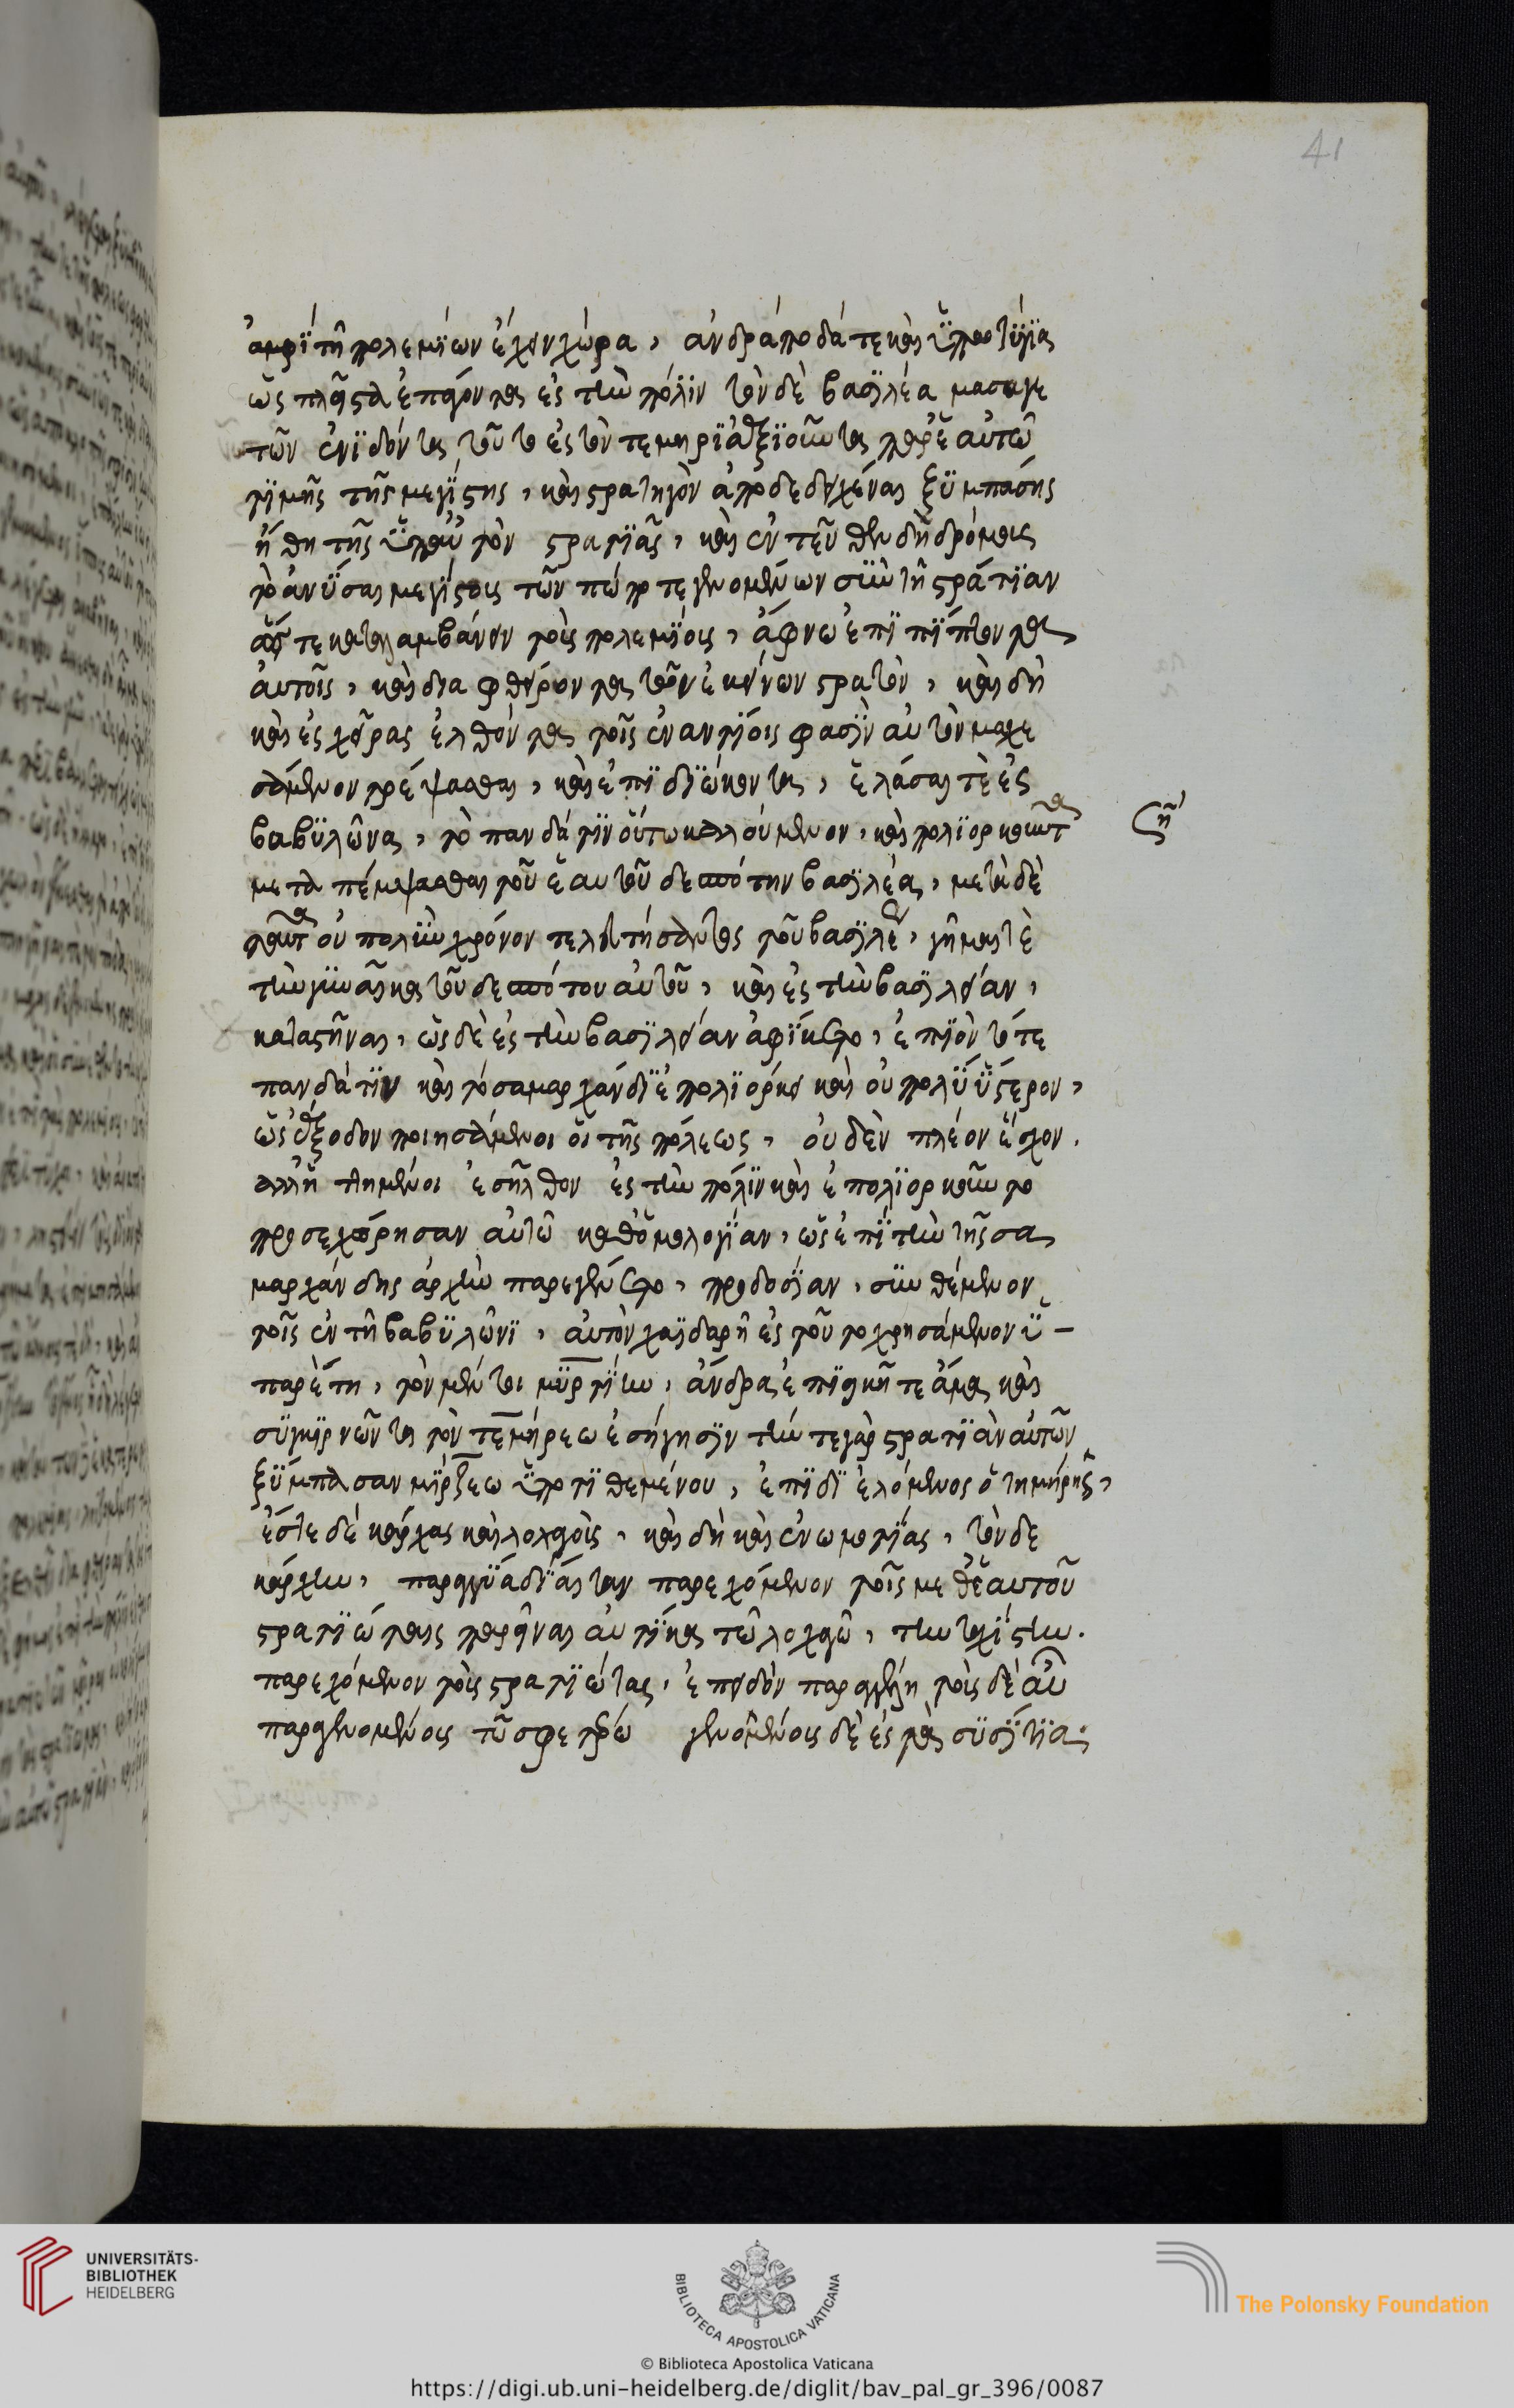 41
ἀμφὶ τῆ πολεμίων ἔχειν χώρα, ἀνδράποδά τε καὶ ὑποζύγια
ὡς πλεῖστα ἐπαγόντα ἐς τὴν πόλιν τὸν δὲ βασιλέα μασαγε
τῶν ἐνιδόντα τοῦτο ἐς τὸν τεμηρι ἀξιοῦντα παρ' ἑαυτῶ
τιμῆς τῆς μεγίστης, καὶ στρατηγὸν ἀποδεδειχέναι ξυμπάσης
ἤδη τῆς ὑπ' αὐτὸν στρατιᾶς, καὶ ἐν
τὸ ἀνύσαι μεγίστοις τῶν πώποτε γενομένων σὺν τῆ στρατιᾶν
τε καταλαμβάνειν τοὺς πολεμίους, ἄφνω ἐπιπίπτοντα
αὐτοῖς, καὶ διαφθείροντα τὸν ἐκείνων στρατὸν, καὶ δὴ
καὶ ἐς χεῖρας ἐλθόντα τοῖς ἐναντίοις φασὶν αὐτὸν μαχε
σάμενον τρέψασθαι, καὶ ἐπιδιώκοντα, ἐλάσαι τὲ ἐς
βαβυλῶνα, τὸ πανδάτιν οὕτω καλούμενον, καὶ πολιορκοῦντα
μεταπέμψασθαι τοῦ ἑαυτοῦ δεσπότην βασιλέα, μετὰ δὲ
ταῦτα οὐ πολὺν χρόνον τελευτήσαντος τοῦ βασιλέως, γῆμαι τὲ
τὴν γυναῖκα τοῦ δεσπότου αὐτοῦ, καὶ ἐς τὴν βασιλείαν,
καταστῆναι, ὡς δὲ ἐς τὴν βασιλείαν ἀφίκετο, ἐπιὼν τότε
πανδάτιν καὶ τὸ σαμαρχάνδι ἐπολιόρκει καὶ οὐ πολὺ ὕστερον,
ὡς ἔξοδον ποιησάμενοι οἱ τῆς πόλεως, οὐδὲν πλέον ἔσχον.
ἀλλ' ἡττημένοι ἐσῆλθον ἐς τὴν πόλιν καὶ ἐπολιορκοῦντο
προσεχώρησαν αὐτῶ καθ' ὁμολογίαν, ὡς ἐπὶ τὴν τῆς σα
μαρχάνδης ἀρχὴν παρεγένετο, προδοσίαν, συνθέμενον
τοῖς ἐν τῆ βαβυλῶνι, αὐτὸν χαϊδαρῆ ἐς τοῦτο χρησάμενον ὑ–
παρέτη, τὸν μέντοι μυρτίην, ἄνδρα ἐπιεικῆ τε ἅμα καὶ
συγκιρνῶντα τὸν τεμήρεω ἐσήγησιν τήν τε γὰρ στρατιὰν αὐτῶν
ξύμπασαν μίρξεω ὑποτιθεμένου, ἐπιδιελόμενος ὁ τημήρης,
ἔς τε δεκάρχας καὶ λοχαγοὺς, καὶ δὴ καὶ ἐνωμοτίας, τὸν δε
κάρχην, παρεγγύα δίαιταν παρεχόμενον τοῖς μεθ' ἑαυτοῦ
στρατιώταις παρεῖναι αὐτίκα τῶ λοχαγῶ, τὴν ταχίστην.
παρεχόμενον τοὺς στρατιώτας, ἐπειδὰν παραγγέλη τοὺς δὲ αὖ
παραγενομένοις τῶ σφετέρω γενομένοις δὲ ἐς τὰ συσίτια.
ση
UNIVERSITÄTS-
BIBLIOTHEK
HEIDELBERG
BIBLIOTECA APOSTOLICA VATICANA
© Biblioteca Apostolica Vaticana
The Polonsky Foundation
https://digi.ub.uni-heidelberg.de/diglit/bav_pal_gr_396/0087